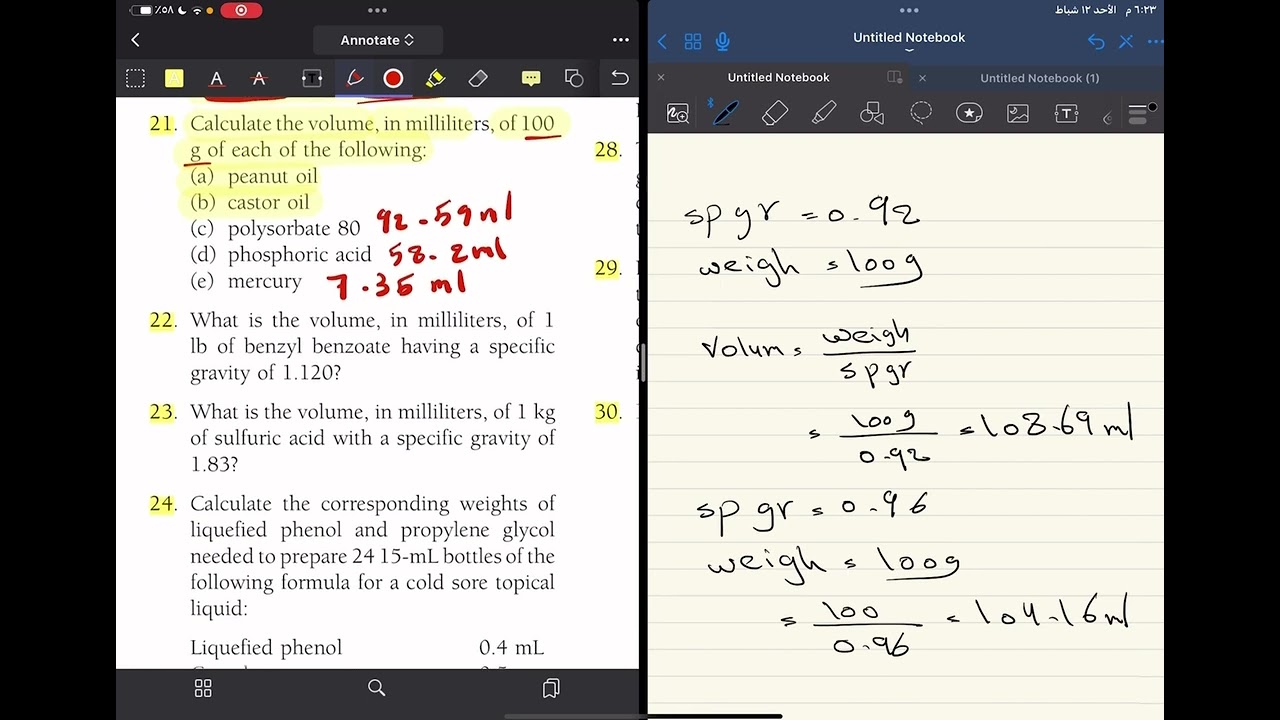 ٥٨٪
٦:٢٣ م الأحد ١٢ شباط
Annotate
Untitled Notebook
Untitled Notebook
Untitled Notebook (1)
21. Calculate the volume, in milliliters, of 100
g of each of the following:
(a) peanut oil
(b) castor oil
(c) polysorbate 80 92.59 ml
(d) phosphoric acid 58.2 ml
(e) mercury 7.35 ml
22. What is the volume, in milliliters, of 1
lb of benzyl benzoate having a specific
gravity of 1.120?
23. What is the volume, in milliliters, of 1 kg
of sulfuric acid with a specific gravity of
1.83?
24. Calculate the corresponding weights of
liquefied phenol and propylene glycol
needed to prepare 24 15-mL bottles of the
following formula for a cold sore topical
liquid:
Liquefied phenol 0.4 mL
28.
29.
30.
sp gr = 0.92
weigh = 100g
Volum = weigh
sp gr
= 100g = 108.69 ml
0.92
sp gr = 0.96
weigh = 100g
= 100 = 104.16 ml
0.96